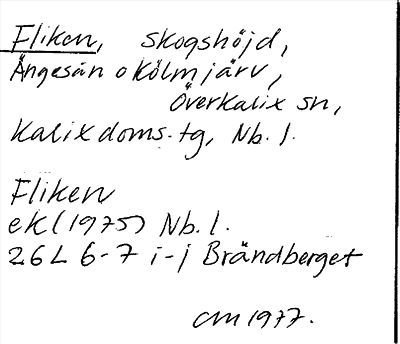 Fliken, skogshöjd,
Ängesån o Kölmjärv,
Överkalix sn,
Kalix doms.tg, Nb. l.
Fliken
ek (1975) Nb. l.
26L 6-7 i-j Brändberget
CM 1977.